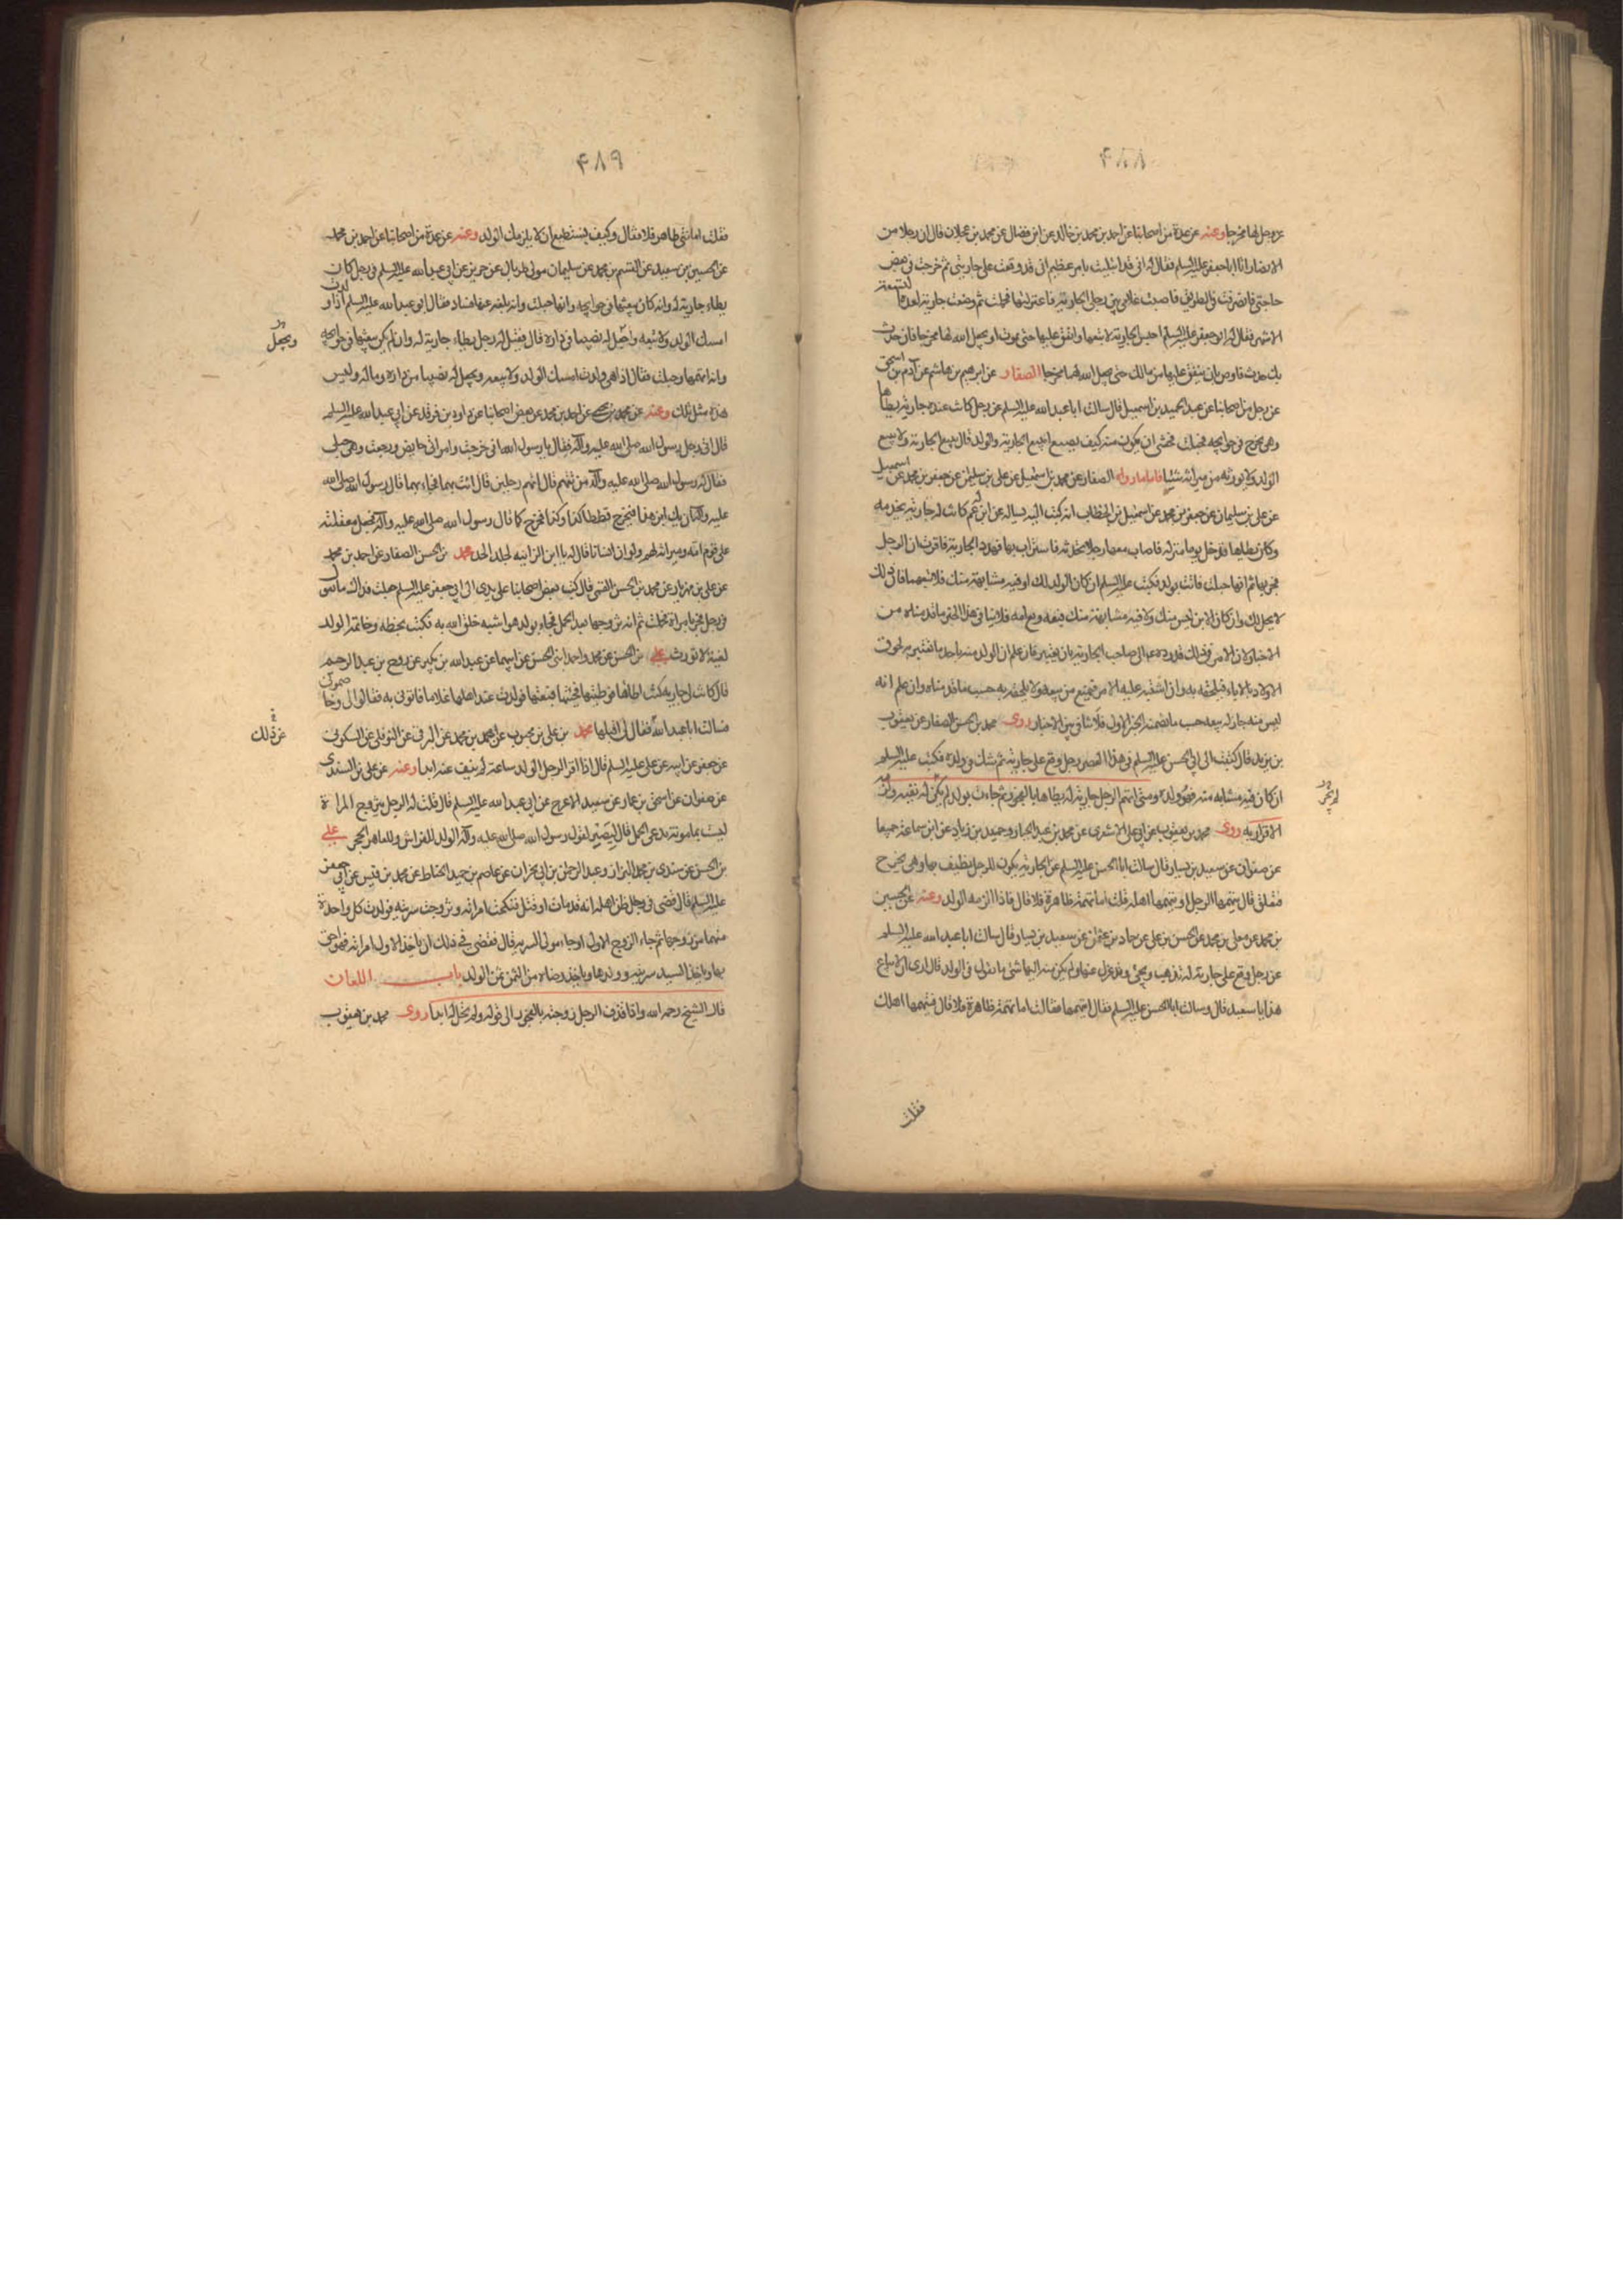 ۴۸۸
عز وجل لها مخرجا وعنه عن عدة من اصحابنا عن احمد بن محمد بن خالد عن ابن فضال عن محمد بن عجلان قال ان رجلا من
الانصار اتا ابا جعفر عليه السلم فقال له انى قد ابتليت بامر عظيم انى قد وقعت على جاريتى ثم خرجت فى بعض
حاجتى فانصرفت من الطريق فاصبت غلامى بين رجلى الجارية فاعتزلتها فحملت ثم وضعت جارية لعدة التسعة
الاشهر فقال له ابو جعفر عليه السلم احبس الجارية لا تبعها وانفق عليها حتى تموت او يجعل الله لها مخرجا فان حدث
بك حدث فاوص ان ينفق عليها من مالك حتى يجعل الله لها مخرجا الصفار عن ابرهيم بن هاشم عن آدم بن اسحق
عن رجل من اصحابنا عن عبد الحميد بن اسمعيل قال سالت ابا عبد الله عليه السلم عن رجل كانت عنده جارية يطاها
وهى تخرج فى حوايجه فحبلت فخشى ان يكون منه كيف يصنع ايبيع الجارية والولد قال يبيع الجارية ولا يبيع
الولد ولا يورثه من ميراثه شيئا فاما ما رواه الصفار عن محمد بن اسمعيل عن على بن سليمن عن جعفر بن محمد عن اسمعيل
عن على بن سليمان عن جعفر بن محمد عن اسمعيل بن الخطاب انه كتب اليه يساله عن ابن عم له كانت له جارية تخدمه
وكان يطاها فدخل يوما منزله فاصاب معها رجلا تحدثه فاستراب بها فهدد الجارية فاقرت ان الرجل
فجر بها ثم انها حبلت فاتت بولد فكتب عليه السلم ان كان الولد لك او فيه مشابهة منك فلا تبعهما فان ذلك
لا يحل لك وان كان الابن ليس منك ولا فيه مشابهة منك فبعه وبع امه فلا ينافى هذا الخبر ما قدمناه من
الاخبار لان الامر فى ذلك قد رده عليه الى صاحب الجارية بان يعتبر فان علم ان الولد منه باحد ما تعتبر به لحوق
الاولاد بالاباء فيلحقه به وان اشتبه عليه الامر فيمتنع من بيعه ولا يلحقه به حسب ما قدمناه وان علم انه
ليس منه جاز له بيعه حسب ما تضمنه الخبر الاول فلا تنافى بين الاخبار روى محمد بن الحسن الصفار عن يعقوب
بن يزيد قال كتبت الى ابى الحسن عليه السلم فى هذا العصر رجل وقع على جاريته ثم شك فى ولده فكتب عليه السلم
ان كان فيه مشابه منه فهو ولده ومتى اتهم الرجل جارية له يطاها بالفجور ثم جاءت بولد لم يكن له نفيه ولزمه
لم يجز
الاقرار به روى محمد بن يعقوب عن ابى على الاشعرى عن محمد بن عبد الجبار وحميد بن زياد عن ابن سماعة جميعا
عن صفوان عن سعيد بن يسار قال سالت ابا الحسن عليه السلم عن الجارية تكون للرجل يطيف بها وهى تخرج
فتعلق قال يتهمها الرجل او يتهمها اهله قلت اما تهمة ظاهرة فلا قال فاذا لزمه الولد وعنه عن الحسين
بن محمد عن معلى بن محمد عن الحسن بن على عن حماد بن عثمان عن سعيد بن يسار قال سالت ابا عبد الله عليه السلم
عن رجل وقع على جارية له تذهب وتجئ وقد عزل عنها ولم يكن منه اليها شئ ما تقول فى الولد قال ارى ان لا يباع
هذا يا سعيد قال وسالت ابا الحسن عليه السلم فقال اتتهمها فقالت اما تهمة ظاهرة فلا قال فيتهمها اهلك
فقلت
۴۸۹
فقلت اما شئ ظاهر فلا فقال وكيف تستطيع ان لا يلزمك الولد وعنه عن عدة من اصحابنا عن احمد بن محمد
عن الحسين بن سعيد عن القسم بن محمد عن سليمان مولى طربال عن حريز عن ابى عبد الله عليه السلم فى رجل كان
يطاء جارية له وانه كان يبعثها فى حوايجه وانها حبلت وانه بلغه عنها فساد فقال ابو عبد الله عليه السلم اذا ولدت
امسك الولد ولا يبعه ويجعل له نصيبا فى داره قال فقيل له رجل يطاء جارية له وانه لم يكن يبعثها فى حوايجه
ويجعل
وانه اتهمها وحبلت فقال اذا هى ولدت امسك الولد ولا يبيعه ويجعل له نصيبا من داره وماله وليس
هذه مثل تلك وعنه عن محمد بن يحيى عن احمد بن محمد عن بعض اصحابنا عن داود بن فرقد عن ابى عبد الله عليه السلم
قال اتى رجل رسول الله صلى الله عليه وآله فقال يا رسول الله انى خرجت وامراتى حايض ورجعت وهى حبلى
فقال له رسول الله صلى الله عليه وآله من تتهم قال اتهم رجلين قال ائت بهما فجاء بهما قال رسول الله صلى الله
عليه وآله ان يك ابن هذا فيخرج قططا كذا وكذا فخرج كما قال رسول الله صلى الله عليه وآله فجعل معقلته
على قوم امه وميراثه لهم ولو ان انسانا قال له يا ابن الزانيه لجلد الحد محمد بن الحسن الصفار عن احمد بن محمد
عن على بن مهزيار عن محمد بن الحسن القمى قال كتب بعض اصحابنا على يدى الى ابى جعفر عليه السلم جعلت فداك ما تقول
فى رجل فجر بامراة فحملت ثم انه تزوجها بعد الحمل فجاءت بولد هو اشبه خلق الله به فكتب بخطه وخاتمه الولد
لغية لا يورث على بن الحسن عن محمد واحمد ابنى الحسن عن ابيهما عن عبد الله بن بكير عن روح بن عبد الرحيم
قال كانت لى جارية كنت اطاها فوطئتها فبعتها فولدت عند اهلها غلاما فاتونى به فقالوا لى وخاصمونى
فسالت ابا عبد الله فقال لى اقبلها محمد بن على بن محبوب عن محمد بن محمد عن البرقى عن النوفلى عن السكونى
عن ذلك
عن جعفر عن ابيه عن على عليه السلم قال اذا اقر الرجل الولد ساعة لم ينف عنه ابدا وعنه عن على بن السندى
عن صفوان عن اسحق بن عمار عن سعيد الاعرج عن ابى عبد الله عليه السلم قال قلت له الرجل يتزوج المراة
ليست بمامونة تدعى الحمل قال ليصبر لقول رسول الله صلى الله عليه وآله الولد للفراش وللعاهر الحجر على
بن الحسن عن سندى بن محمد البزاز وعبد الرحمن بن ابى نجران عن عاصم بن حميد الحناط عن محمد بن قيس عن ابى جعفر
عليه السلم قال قضى فى رجل ظن اهله انه قد مات او قتل فنكحت امراته وتزوجت سريته فولدت كل واحدة
منهما من زوجها ثم جاء الزوج الاول او جاء مولى السرية قال فقضى فى ذلك ان ياخذ الاول امراته فهو احق
بها وياخذ السيد سريته وولدها وياخذ رضاه من الثمن ثمن الولد باب اللعان
قال الشيخ رحمه الله واذا قذف الرجل زوجته بالفجور الى قوله ولم تحل له ابدا روى محمد بن يعقوب